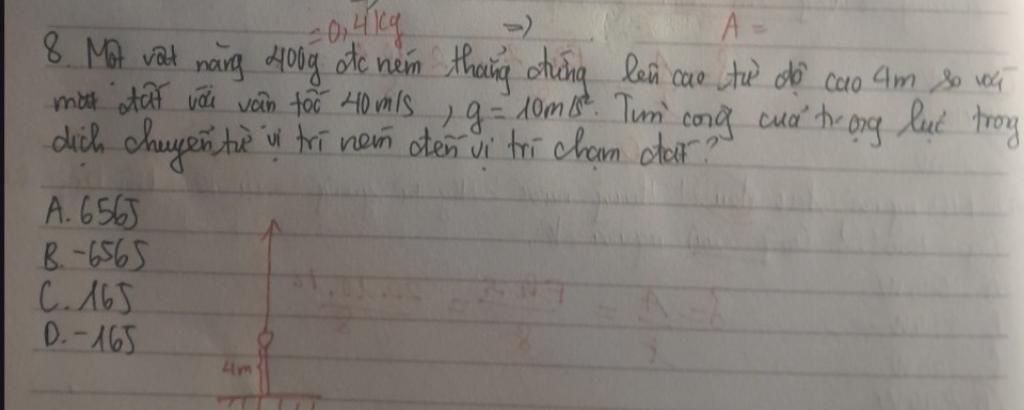 = 0,4kg => A =
8 Một vật nặng 400g đc ném thẳng đứng lên cao từ độ cao 4m so với
mặt đất với vận tốc 40m/s, g = 10m/s². Tìm công của trọng lực trong
dịch chuyển từ vị trí ném đến vị trí chạm đất?
A. 656J
B. -656J
C. 16J
D. -16J
4m